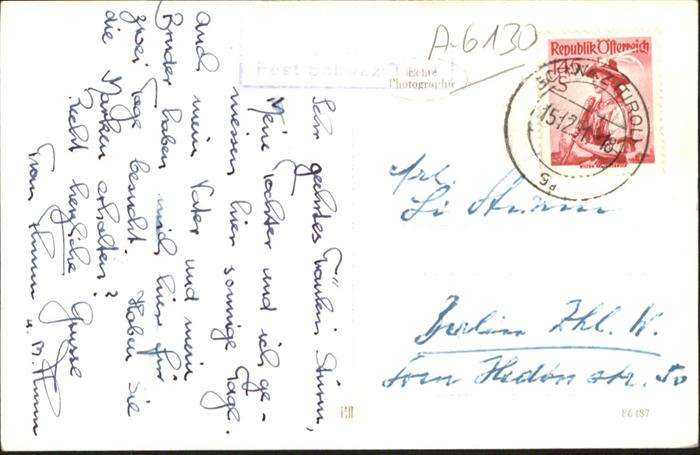 A-6130
Republik Österreich
Echte
Photographie
SCHWAZ (TIROL)
Post Schwaz
Sehr geehrtes Fräulein Sturm,
Meine Tochter und ich ge-
niessen hier sonnige Tage.
Auch mein Vater und mein
Bruder haben mich hier für
zwei Tage besucht. Haben Sie
die Marken erhalten?
Recht herzliche Grüsse
Frau Thurn
u. M. Thurn
Frl.
Li Sturm
Berlin Zhl. W.
Sven Hedin str. 50
86487